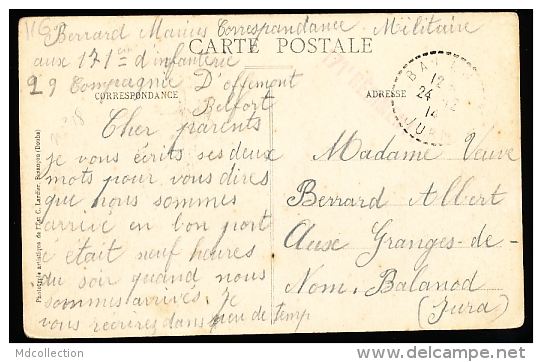 Berrard Marius Correspondance Militaire
CARTE POSTALE
aux 171em d'infanterie
29 Compagnie D'offemont
CORRESPONDANCE
Belfort
ADRESSE
12
24 12
14
JU
Cher parents
je vous écrits ses deux
mots pour vous dires
que nous sommes
arrivé en bon port
é était neuf heures
du soir quand nous
sommes arrivés. Je
vous réécrires dans peu de temp
Madame Veuve
Berrard Albert
Aux Granges-de-
Nom, Balanod
(Jura)
Phototypie artistique de l'Edit C. Lardier, Besançon (Doubs)
Mdcollection
http://www.delcampe.net